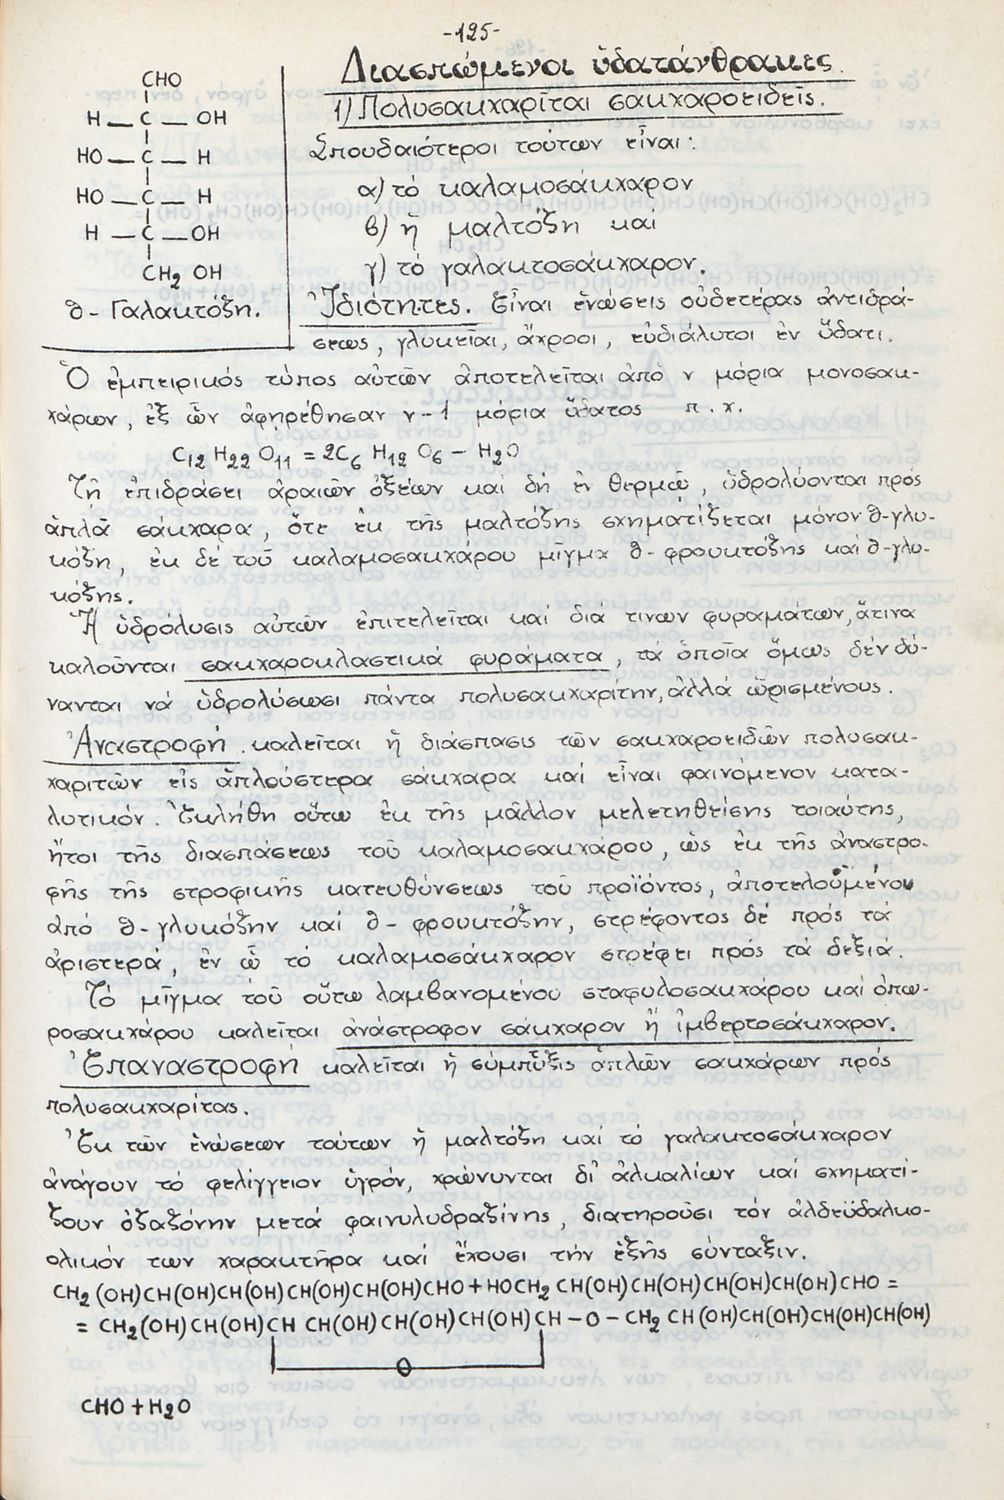 -125-
CHO
H — C — OH
HO — C — H
HO — C — H
H — C — OH
CH2 OH
δ - Γαλακτόζη.
Διασπώμενοι ὑδατάνθρακες.
1) Πολυσακχαρῖται σακχαροειδεῖς.
Σπουδαιότεροι τούτων εἶναι:
α) τό καλαμοσάκχαρον
β) ἡ μαλτόζη καί
γ) τό γαλακτοσάκχαρον.
Ἰδιότητες. Εἶναι ἑνώσεις οὐδετέρας ἀντιδρά-
σεως, γλυκεῖαι, ἄχροοι, εὐδιάλυτοι ἐν ὕδατι.
Ὁ ἐμπειρικός τύπος αὐτῶν ἀποτελεῖται ἀπό ν μόρια μονοσακ-
χάρων, ἐξ ὧν ἀφηρέθησαν ν-1 μόρια ὕδατος π.χ.
C12 H22 O11 = 2C6 H12 O6 - H2O
Τῇ ἐπιδράσει ἀραιῶν ὀξέων καί δή ἐν θερμῷ, ὑδρολύονται πρός
ἁπλᾶ σάκχαρα, ὅτε ἐκ τῆς μαλτόζης σχηματίζεται μόνον δ-γλυ-
κόζη, ἐκ δέ τοῦ καλαμοσακχάρου μῖγμα δ- φρουκτόζης καί δ-γλυ-
κόζης.
Ἡ ὑδρόλυσις αὐτῶν ἐπιτελεῖται καί διά τινων φυραμάτων, ἅτινα
καλοῦνται σακχαροκλαστικά φυράματα, τα ὁποῖα ὅμως δεν δύ-
νανται νά ὑδρολύσωσι πάντα πολυσακχαρίτην, ἀλλά ὡρισμένους.
Ἀναστροφή καλεῖται ἡ διάσπασις τῶν σακχαροειδῶν πολυσακ-
χαριτῶν εἰς ἁπλούστερα σάκχαρα καί εἶναι φαινόμενον κατα-
λυτικόν. Ἐκλήθη οὕτω ἐκ τῆς μᾶλλον μελετηθείσης τοιαύτης,
ἤτοι τῆς διασπάσεως τοῦ καλαμοσακχάρου, ως ἐκ τῆς ἀναστρο-
φῆς τῆς στροφικῆς κατευθύνσεως τοῦ προϊόντος, ἀποτελουμένου
ἀπό δ- γλυκόζην καί δ- φρουκτόζην, στρέφοντος δέ πρός τά
ἀριστερά, ἐν ᾧ τό καλαμοσάκχαρον στρέφει πρός τά δεξιά.
Τό μῖγμα τοῦ οὕτω λαμβανομένου σταφυλοσακχάρου καί ὀπω-
ροσακχάρου καλεῖται ἀνάστροφον σάκχαρον ἤ ἰμβερτοσάκχαρον.
Ἐπαναστροφή καλεῖται ἡ σύμπηξις ἁπλῶν σακχάρων πρός
πολυσακχαρίτας.
Ἐκ τῶν ἑνώσεων τούτων ἡ μαλτόζη καί τό γαλακτοσάκχαρον
ἀνάγουν τό φελίγγειον ὑγρόν, χρώνυνται δι' ἀλκαλίων καί σχηματί-
ζουν ὀζαζόνην μετά φαινυλυδραζίνης, διατηροῦσι τόν ἀλδεϋδαλκο-
ολικόν των χαρακτῆρα καί ἔχουσι τήν ἑξῆς σύνταξιν.
CH2 (OH) CH(OH) CH(OH) CH(OH) CH(OH) CHO + HOCH2 CH(OH) CH(OH) CH(OH) CH(OH) CHO =
= CH2 (OH) CH(OH) CH CH(OH) CH(OH) CH(OH) CH - O - CH2 CH(OH) CH(OH) CH(OH) CH(OH)
O
CHO + H2O